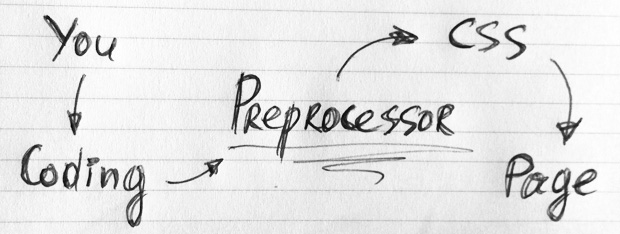 You
Coding
Preprocessor
CSS
Page